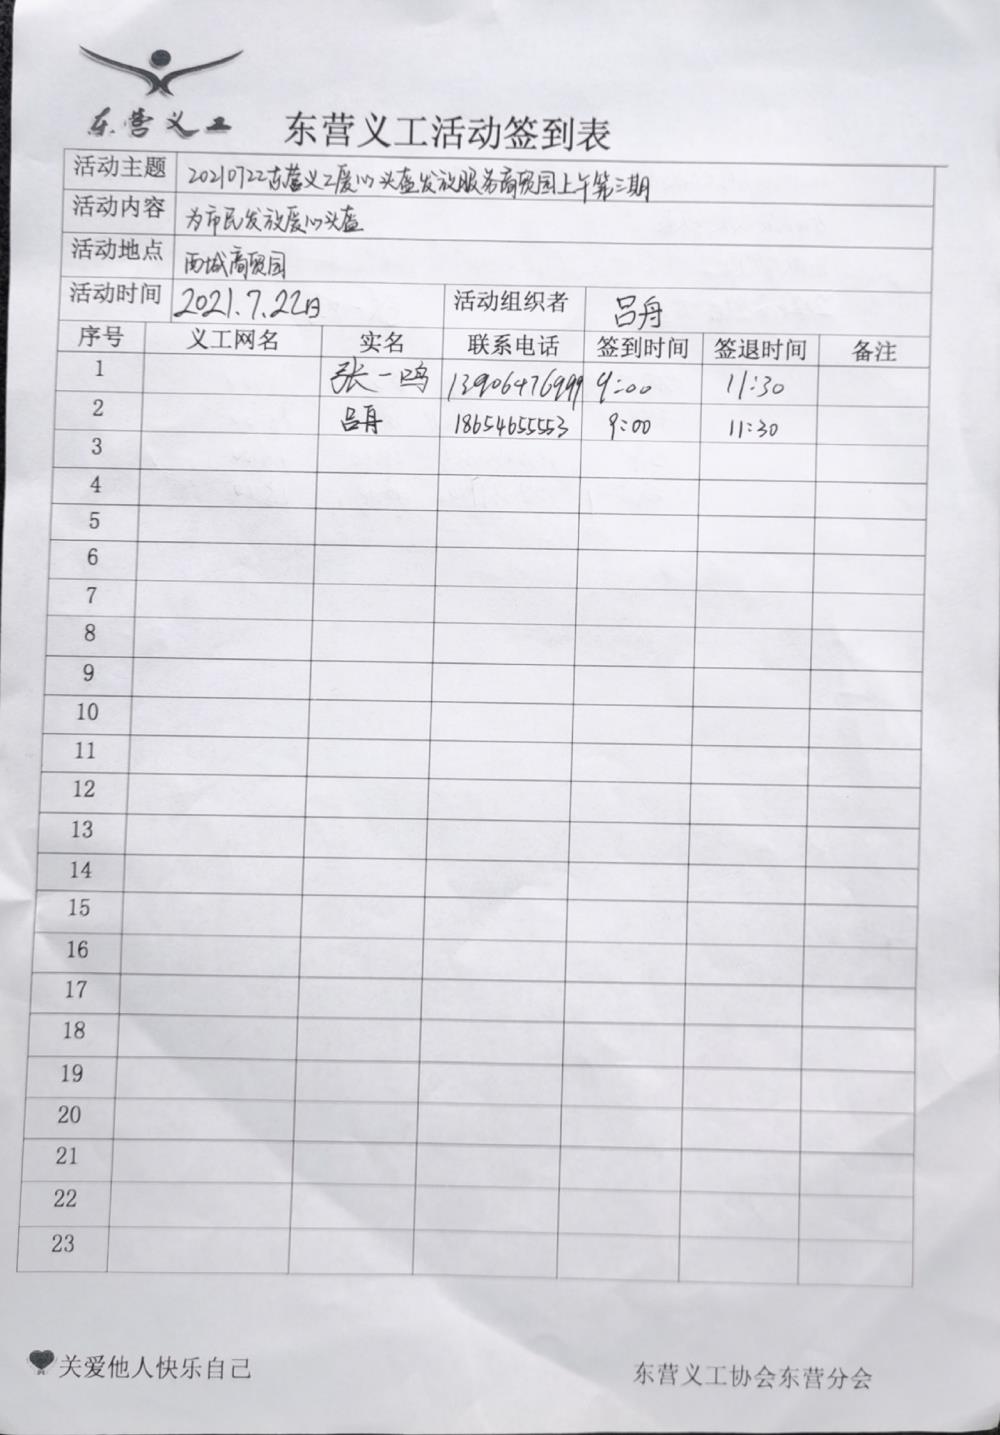 东营义工
东营义工活动签到表
活动主题 20210722东营义工爱心头盔发放服务商贸园上午第三期
活动内容 为市民发放爱心头盔
活动地点 西城商贸园
活动时间 2021.7.22日 活动组织者 吕舟
序号 义工网名 实名 联系电话 签到时间 签退时间 备注
1 张一鸣 13906476999 9:00 11:30
2 吕舟 18654655553 9:00 11:30
3
4
5
6
7
8
9
10
11
12
13
14
15
16
17
18
19
20
21
22
23
关爱他人快乐自己 东营义工协会东营分会